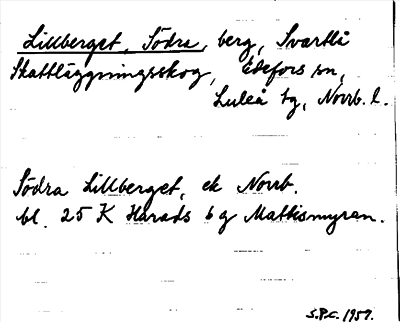 Lillberget, Södra, berg, Svartlå
Skattläggningsskog, Edefors sn,
Luleå tg, Norrb. l.
Södra Lillberget, ek Norrb.
bl. 25 K Harads 6 g Mattismyran.
S.P.C. 1957.